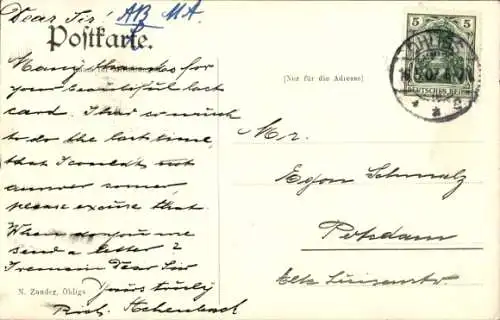 Dear Sir! AB MA.
Postkarte.
Many thanks for
your beautiful last
card. I had so much
to do the last time,
that I couldn't not
answer sooner,
please excuse that.
When do you me
send a letter?
I remain Dear Sir
Yours truly
Rich. Achenbach
N. Zander, Ohligs
(Nur für die Adresse)
5 5
DEUTSCHES REICH
Mr.
Egon Schmalz
Potsdam
Alte Luisenstr.